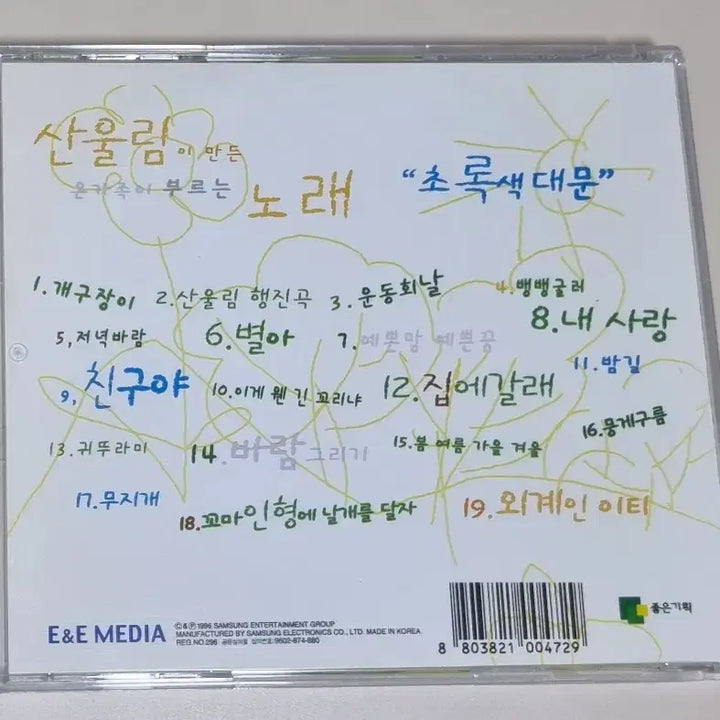 산울림이 만든
온가족이 부르는 노래
"초록색 대문"
1. 개구장이
2. 산울림 행진곡
3. 운동회날
4. 뱅뱅굴러
5, 저녁바람
6. 별아
7. 예쁜맘 예쁜꿈
8. 내 사랑
9, 친구야
10. 이게 웬 긴 꼬리냐
11. 밤길
12. 집에갈래
13. 귀뚜라미
14. 바람 그리기
15. 봄 여름 가을 겨울
16. 뭉게구름
17. 무지개
18. 꼬마인형에 날개를 달자
19. 외계인 이티
E&E MEDIA
©&℗1996 SAMSUNG ENTERTAINMENT GROUP
MANUFACTURED BY SAMSUNG ELECTRONICS CO., LTD. MADE IN KOREA.
REG.NO.296 공윤심의필 심의번호:9602-874-880
8 803821 004729
좋은기획